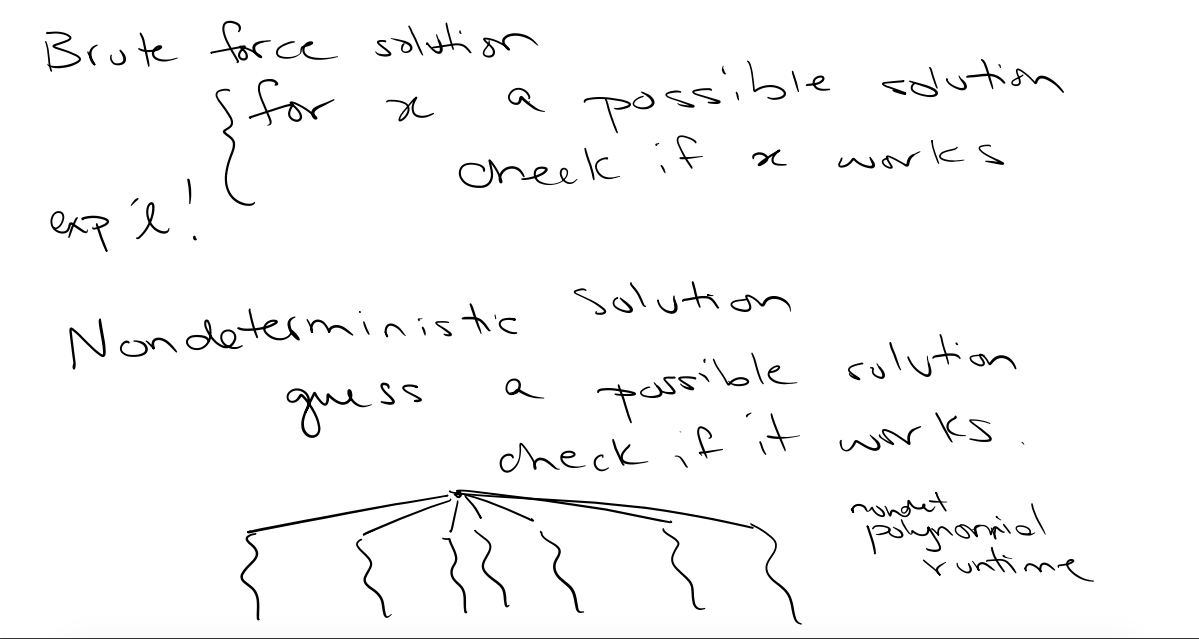 Brute force solution
for x a possible solution
check if x works
exp'l!
Nondeterministic solution
guess a possible solution
check if it works.
nondet
polynomial
runtime